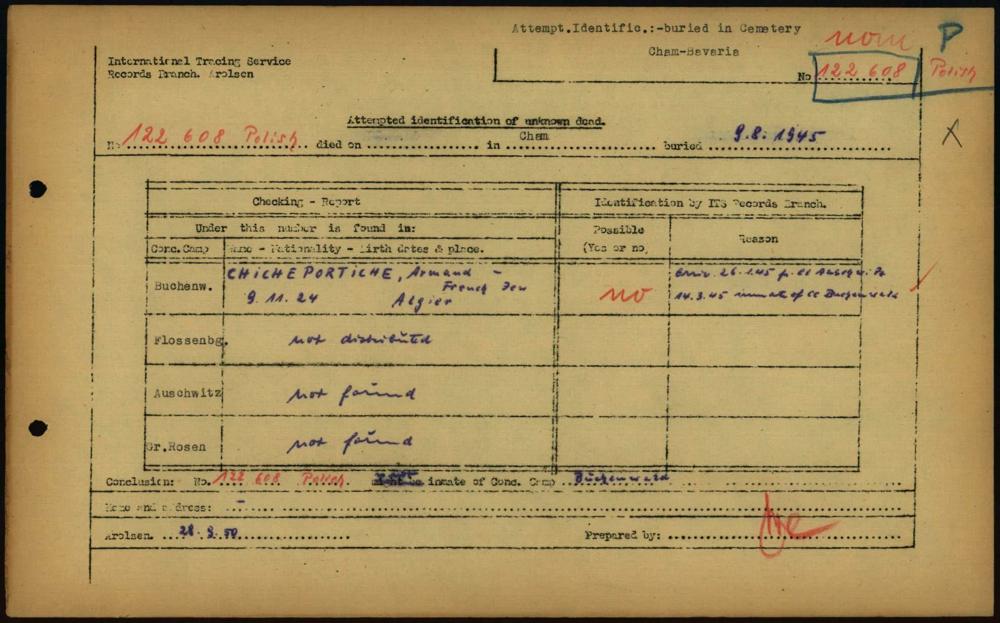 Attempt.Identific.:-buried in Cemetery
Cham-Bavaria
nom P
No 122 608 Polish
International Tracing Service
Records Branch. Arolsen
Attempted identification of unknown dead.
No 122 608 Polish died on in Cham buried 9.8.1945
X
Checking - Report
Identification by ITS Records Branch.
Under this number is found in:
Possible (Yes or no)
Reason
Conc.Camp
Name - Nationality - Birth dates & place.
Buchenw.
CHICHEPORTICHE, Armand -
French Jew
9.11.24 Algier
no
26.1.45 fr. CC Auschwitz
14.3.45 inmate of CC Buchenwald
Flossenbg. not distributed
Auschwitz not found
Gr.Rosen not found
Conclusion: No. 122 608 Polish. inmate of Conc. Camp Buchenwald
Name and address: -
Arolsen. 28.9.50
Prepared by: